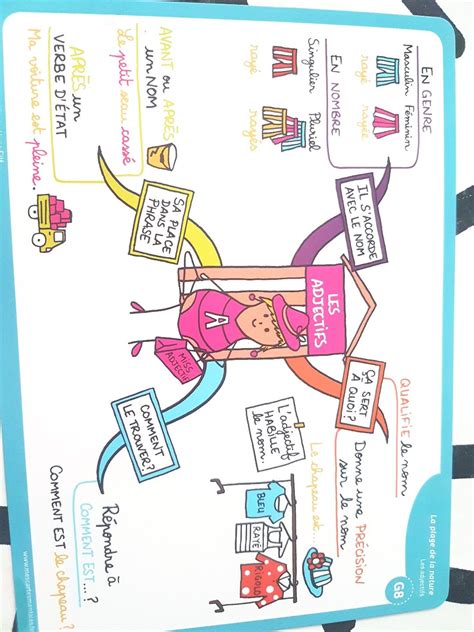 La plage de la nature
Les adjectifs
G8
LES
ADJECTIFS
A
MISS
ADJECTIF
IL S'ACCORDE
AVEC LE NOM
EN GENRE
Masculin Féminin
rayé rayée
EN NOMBRE
Singulier Pluriel
rayé rayés
SA PLACE
DANS LA
PHRASE
AVANT ou APRÈS
un NOM
Le petit seau cassé
APRÈS un
VERBE D'ÉTAT
Ma voiture est pleine.
ÇA SERT
À QUOI?
QUALIFIE le nom
Donne une PRÉCISION
sur le nom
Le chapeau est...
L'adjectif
HABILLE
le nom.
BLEU
RAYÉ
RIGOLO
COMMENT
LE TROUVER?
Répondre à
COMMENT EST...?
COMMENT EST le chapeau?